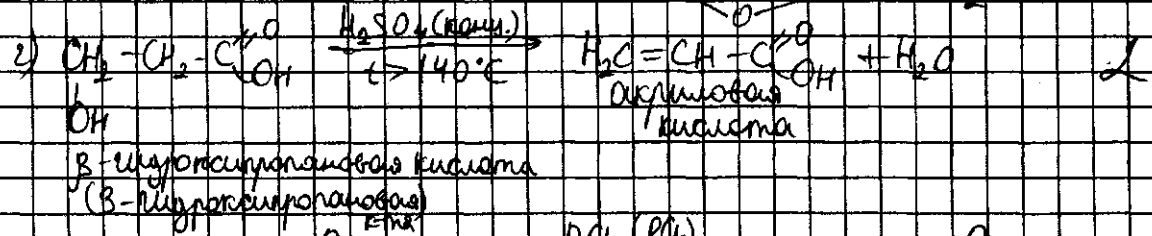 г) CH₂-CH₂-C(=O)OH H₂SO₄(конц.) t>140°C → H₂C=CH-C(=O)OH + H₂O 2
OH акриловая
кислота
β-гидроксипропановая кислота
(β-гидроксипропановая)
к-та